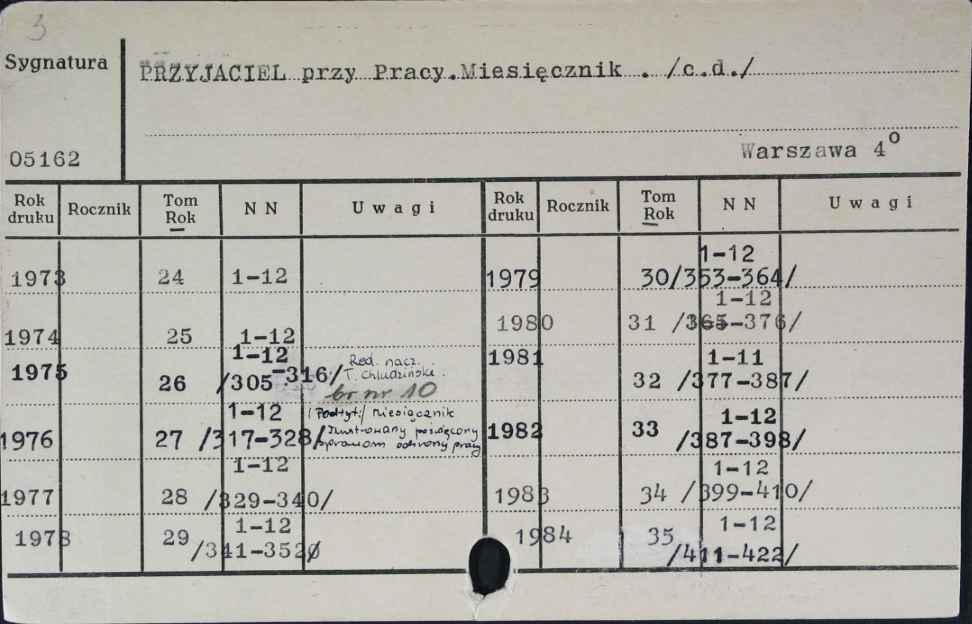 3
Sygnatura
PRZYJACIEL przy Pracy.Miesięcznik . /c.d./
05162
Warszawa 4º
Rok druku Rocznik Tom Rok N N Uwagi Rok druku Rocznik Tom Rok N N Uwagi
1973 24 1-12
1974 25 1-12
1975 26 1-12 /305-316/ Red. nacz.
T. Chludziński.
br nr 10
1976 27 1-12 /317-328/ /Podtyt:/ Miesięcznik
Ilustrowany poświęcony
sprawom ochrony pracy
1977 28 1-12 /329-340/
1978 29 1-12 /341-352/
1979 30 1-12 /353-364/
1980 31 1-12 /365-376/
1981 32 1-11 /377-387/
1982 33 1-12 /387-398/
1983 34 1-12 /399-410/
1984 35 1-12 /411-422/